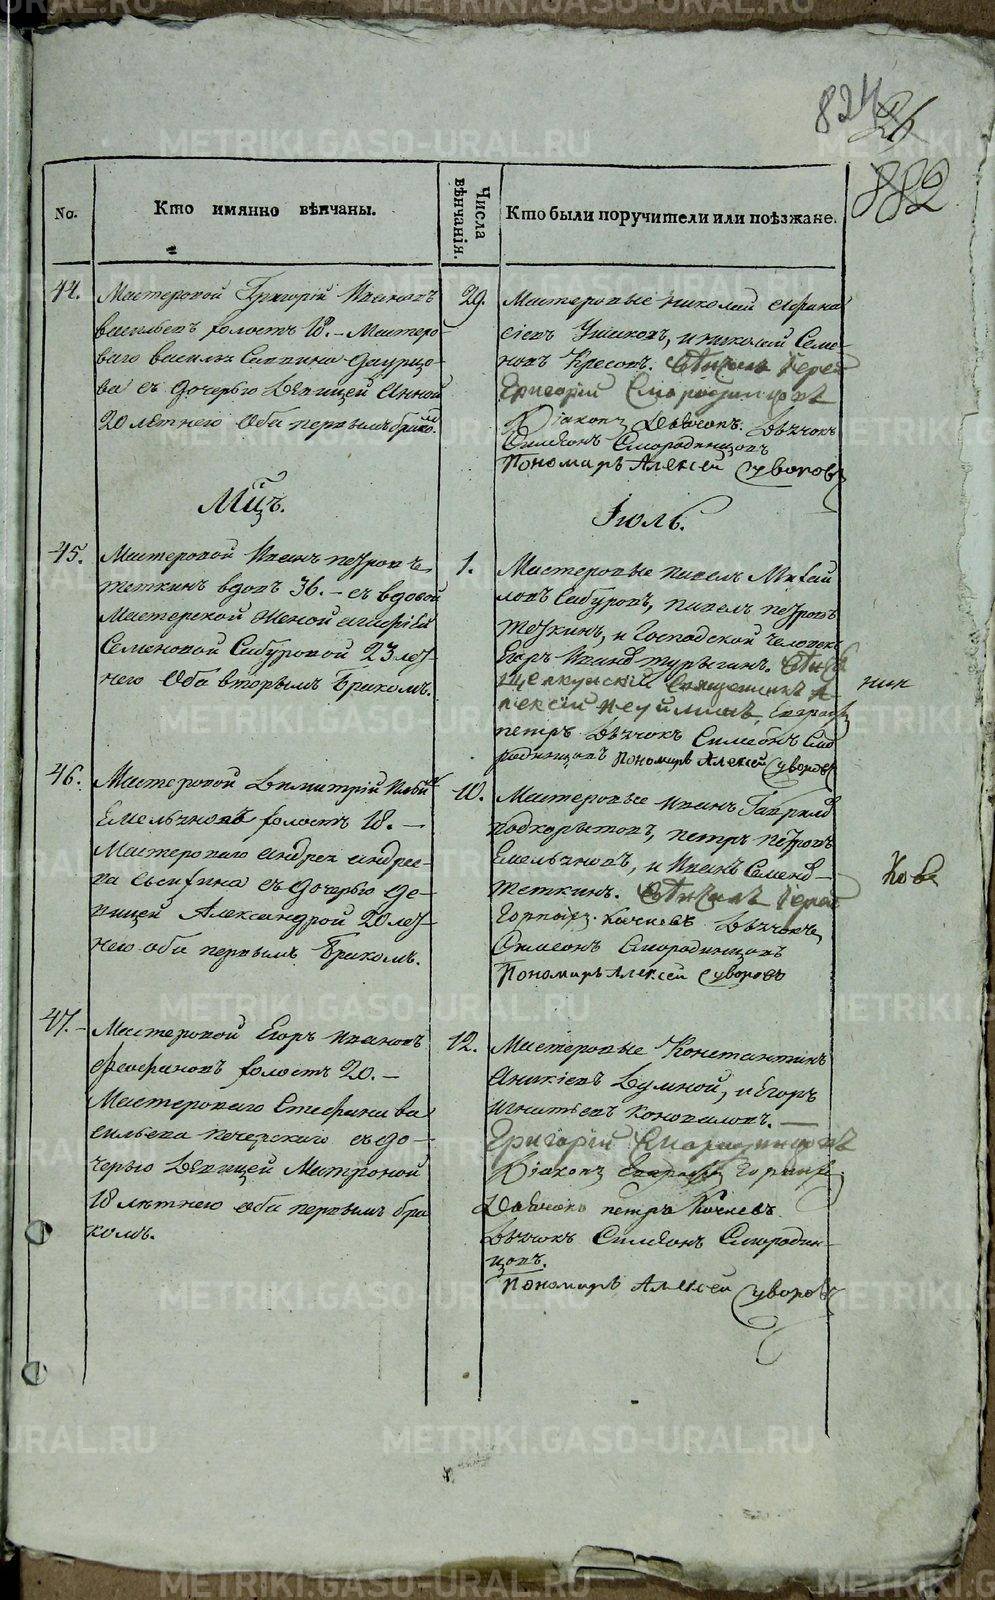 824
26
882
No.
Кто имянно вѣнчаны.
Числа вѣнчанія.
Кто были поручители или поѣзжане.
44.
Мастеровой Григорій Ивановъ
васильевъ холостъ 18. – Мастеро-
ваго
ва съ дочерью Дѣвицей Анной
20 лѣтнею Оба первымъ бракомъ.
29.
Мастеровые Николай Афана
сіевъ Ушаковъ, и николай Семе-
новъ
Григорій Смородинцовъ
Діаконъ Дьячокъ
Симеонъ Смородинцовъ
Пономарь Алексѣй Суворовъ
Мцъ.
Іюль.
45.
Мастеровой Иванъ петровъ
теткинъ вдовъ 36. – съ вдовой
Мастерской женой агафіей
Семеновой Сабуровой 23 лет-
нею Оба вторымъ бракомъ.
1.
Мастеровые павелъ Михай
ловъ Сабуровъ, павелъ петровъ
теткинъ, и Господской человекъ
Егоръ Ивановъ
Священникъ А
лексій
петръ Дьячокъ Симеонъ Смо
родинцовъ Пономарь Алексѣй Суворовъ
нин
46.
Мастеровой Димитрій Ильинъ
Емельяновъ холостъ 18. –
Мастероваго андрея андрее-
ва съ дочерью де-
вицей Александрой 20 лет-
нею оба первымъ бракомъ.
10.
Мастеровые иванъ Гаврил
подкорытовъ, петръ петровъ
Емельяновъ, и Иванъ Семенов –
теткинъ.
Кочневъ Дьячокъ
Симеонъ Смородинцовъ
Пономарь Алексѣй Суворовъ
Ков
47.
Мастеровой Егоръ Ивановъ
Феофановъ холостъ 20. –
Мастероваго Стефана ва
сильева печерскаго съ до-
черью Дѣвицей Матроной
18 лѣтнею оба первымъ бра
комъ.
12.
Мастеровые Константинъ
Аникіевъ Думной, и Егоръ
игнатьевъ коновалов. –
Григорій Смородинцовъ
Діаконъ
петръ Кочневъ
Дьячокъ Симеонъ Смородин-
цовъ.
Пономарь Алексѣй Суворовъ
METRIKI.GASO-URAL.RU